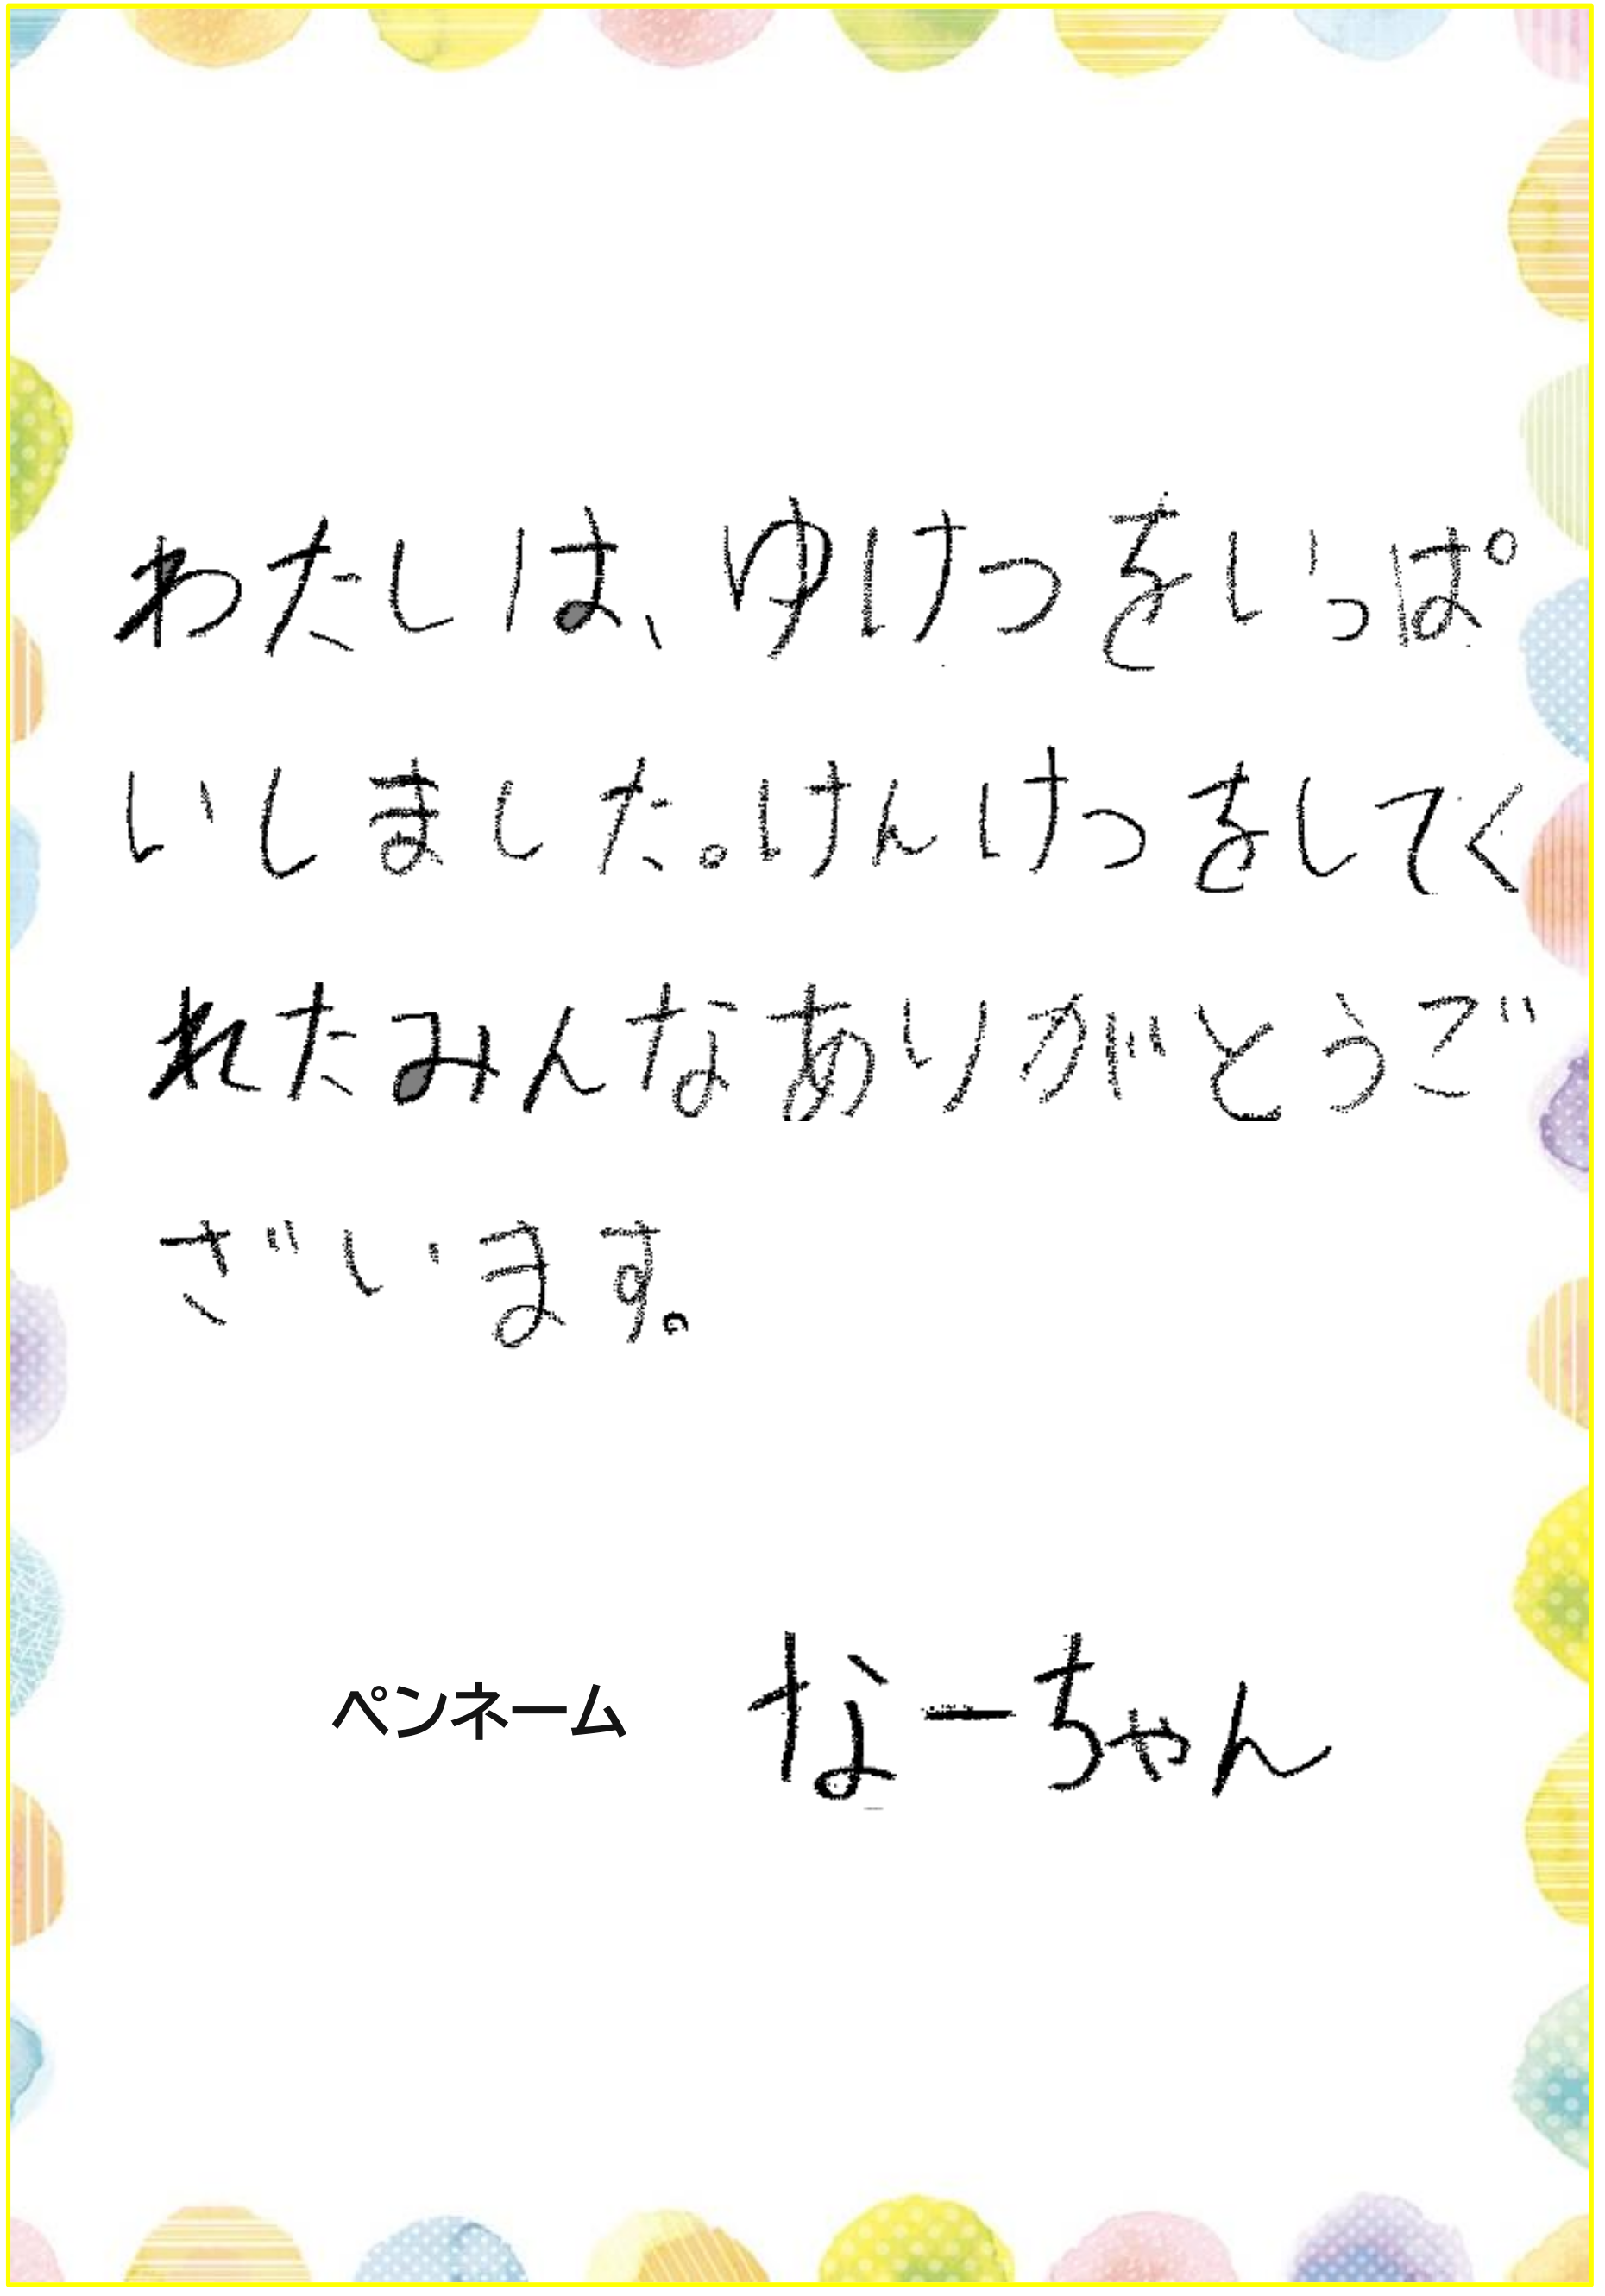 わたしは、ゆけつをいっぱ
いしました。けんけつをしてく
れたみんなありがとうご
ざいます。
ペンネーム なーちゃん